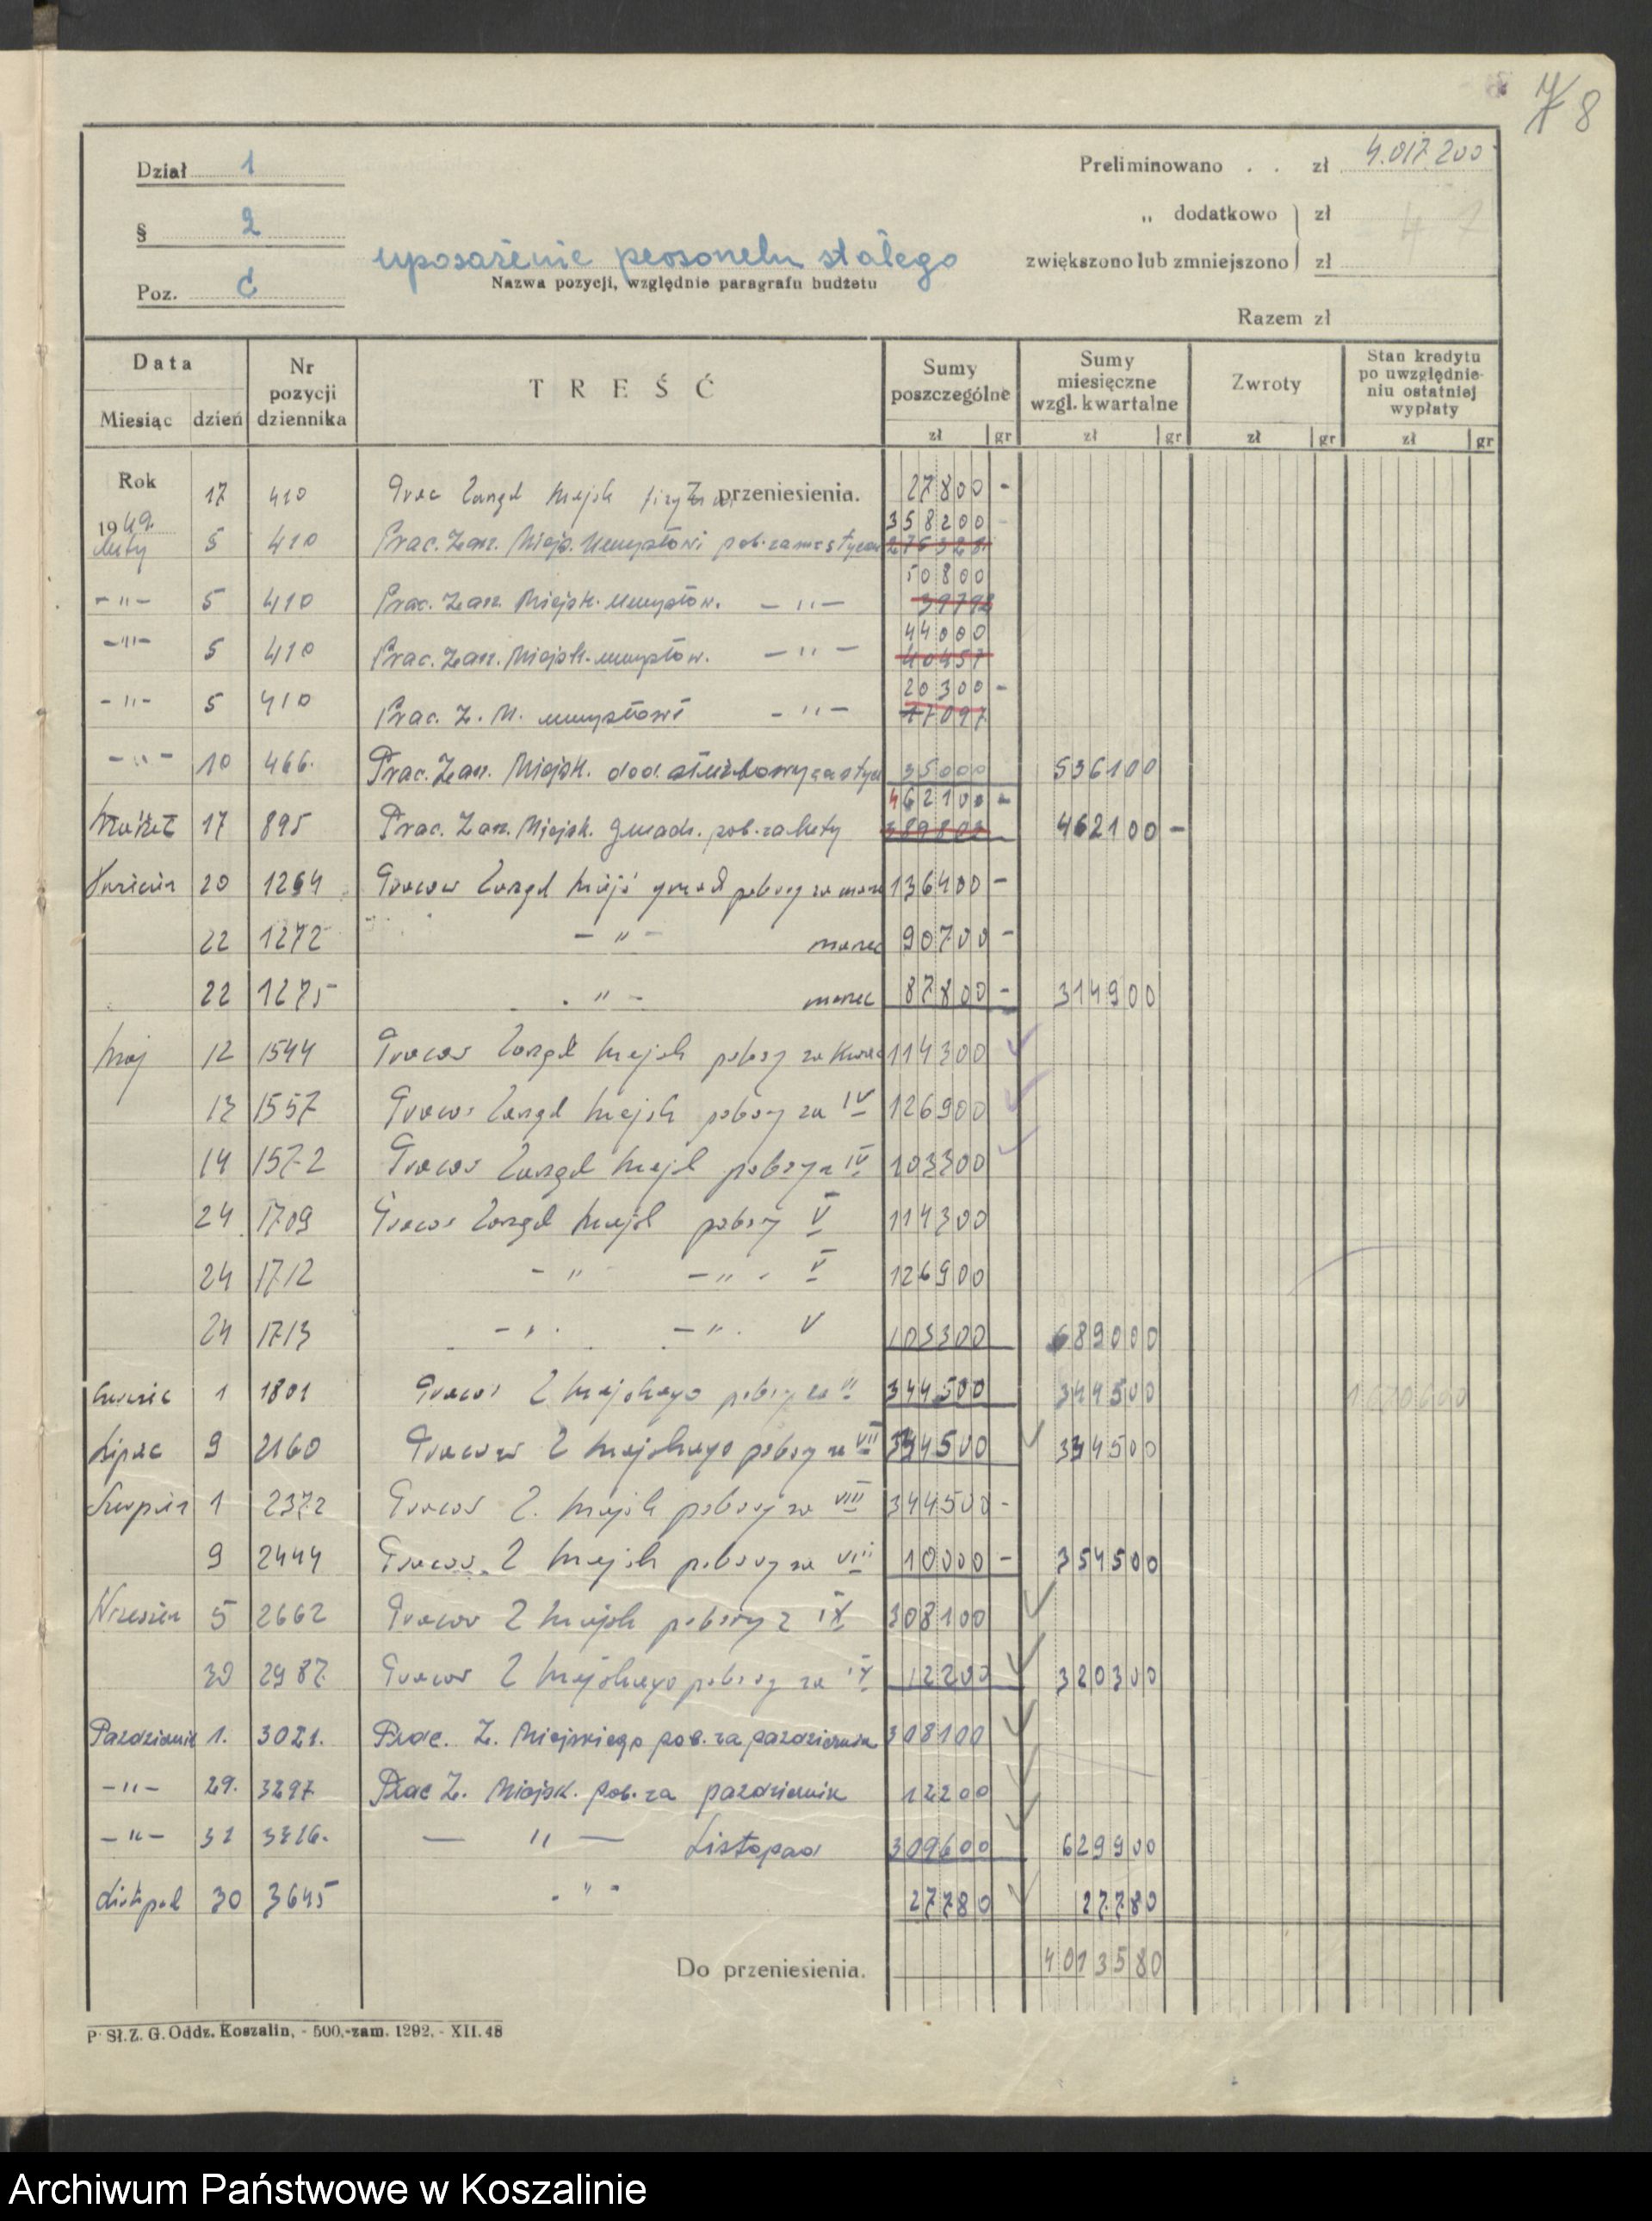 7 8
Dział 1
§ 2
Poz. C
uposażenie personelu stałego
Nazwa pozycji, względnie paragrafu budżetu
Preliminowano . . zł 4.017.200
„ dodatkowo zł
zwiększono lub zmniejszono zł
Razem zł
Data
Miesiąc dzień
Nr pozycji dziennika
TREŚĆ
Sumy poszczególne
Sumy miesięczne wzgl. kwartalne
Zwroty
Stan kredytu po uwzględnieniu ostatniej wypłaty
zł gr zł gr zł gr zł gr
Rok 1949.
17 410 Prac Zarząd Miejsk przeniesienia. 27800 -
358200
Luty 5 410 Prac. Zarz. Miejs. Umysłowi pob. za m-c
50800
-"- 5 410 Prac. Zarz. Miejsk. umysłow. -"- 39798
44000
-"- 5 410 Prac. Zarz. Miejsk. umysłow. -"- 40457
20300 -
-"- 5 410 Prac. Z. M. umysłowi -"- 17097
-"- 10 466. Prac. Zarz. Miejsk. dod. służbowy za stycz 35000 536100
462100 -
Marzec 17 895 Prac. Zarz. Miejsk. pob. za luty 389803 462100 -
Kwiecień 20 1264 Pracow Zarząd Miejs pobory za marz 136400 -
22 1272 -"- marzec 90700 -
22 1275 -"- marzec 87800 - 314900
Maj 12 1544 Pracow Zarząd Miejsk pobory za Kwiec 114300
13 1557 Pracow Zarząd Miejsk pobory za IV 126900
14 1572 Pracow Zarząd Miejsk pobory za IV 103300
24 1709 Pracow Zarząd Miejsk pobory V 114300
24 1712 -"- -"- V 126900
24 1713 -"- -"- V 103300 689000
Czerwiec 1 1801 Pracow Z Miejskiego pobory za 344500 344500
Lipiec 9 2160 Pracow Z Miejskiego pobory za VII 344500 344500
Sierpień 1 2372 Pracow Z. Miejsk pobory za VIII 344500 -
9 2444 Pracow. Z Miejsk pobory za VIII 10000 - 354500
Wrzesień 5 2662 Pracow Z Miejsk pobory z IX 308100
30 2987 Pracow Z Miejskiego pobory za IX 12200 320300
Październik 1. 3021. Prac. Z. Miejskiego pob. za październik 308100
-"- 29. 3297 Prac Z. Miejsk. pob. za październik 12200
-"- 31 3326. — " — Listopad 309600 629900
Listopad 30 3645 -"- 27780 27780
Do przeniesienia. 4013580
P. Sł. Z. G. Oddz. Koszalin, - 500.-zam. 1292. - XII. 48
Archiwum Państwowe w Koszalinie